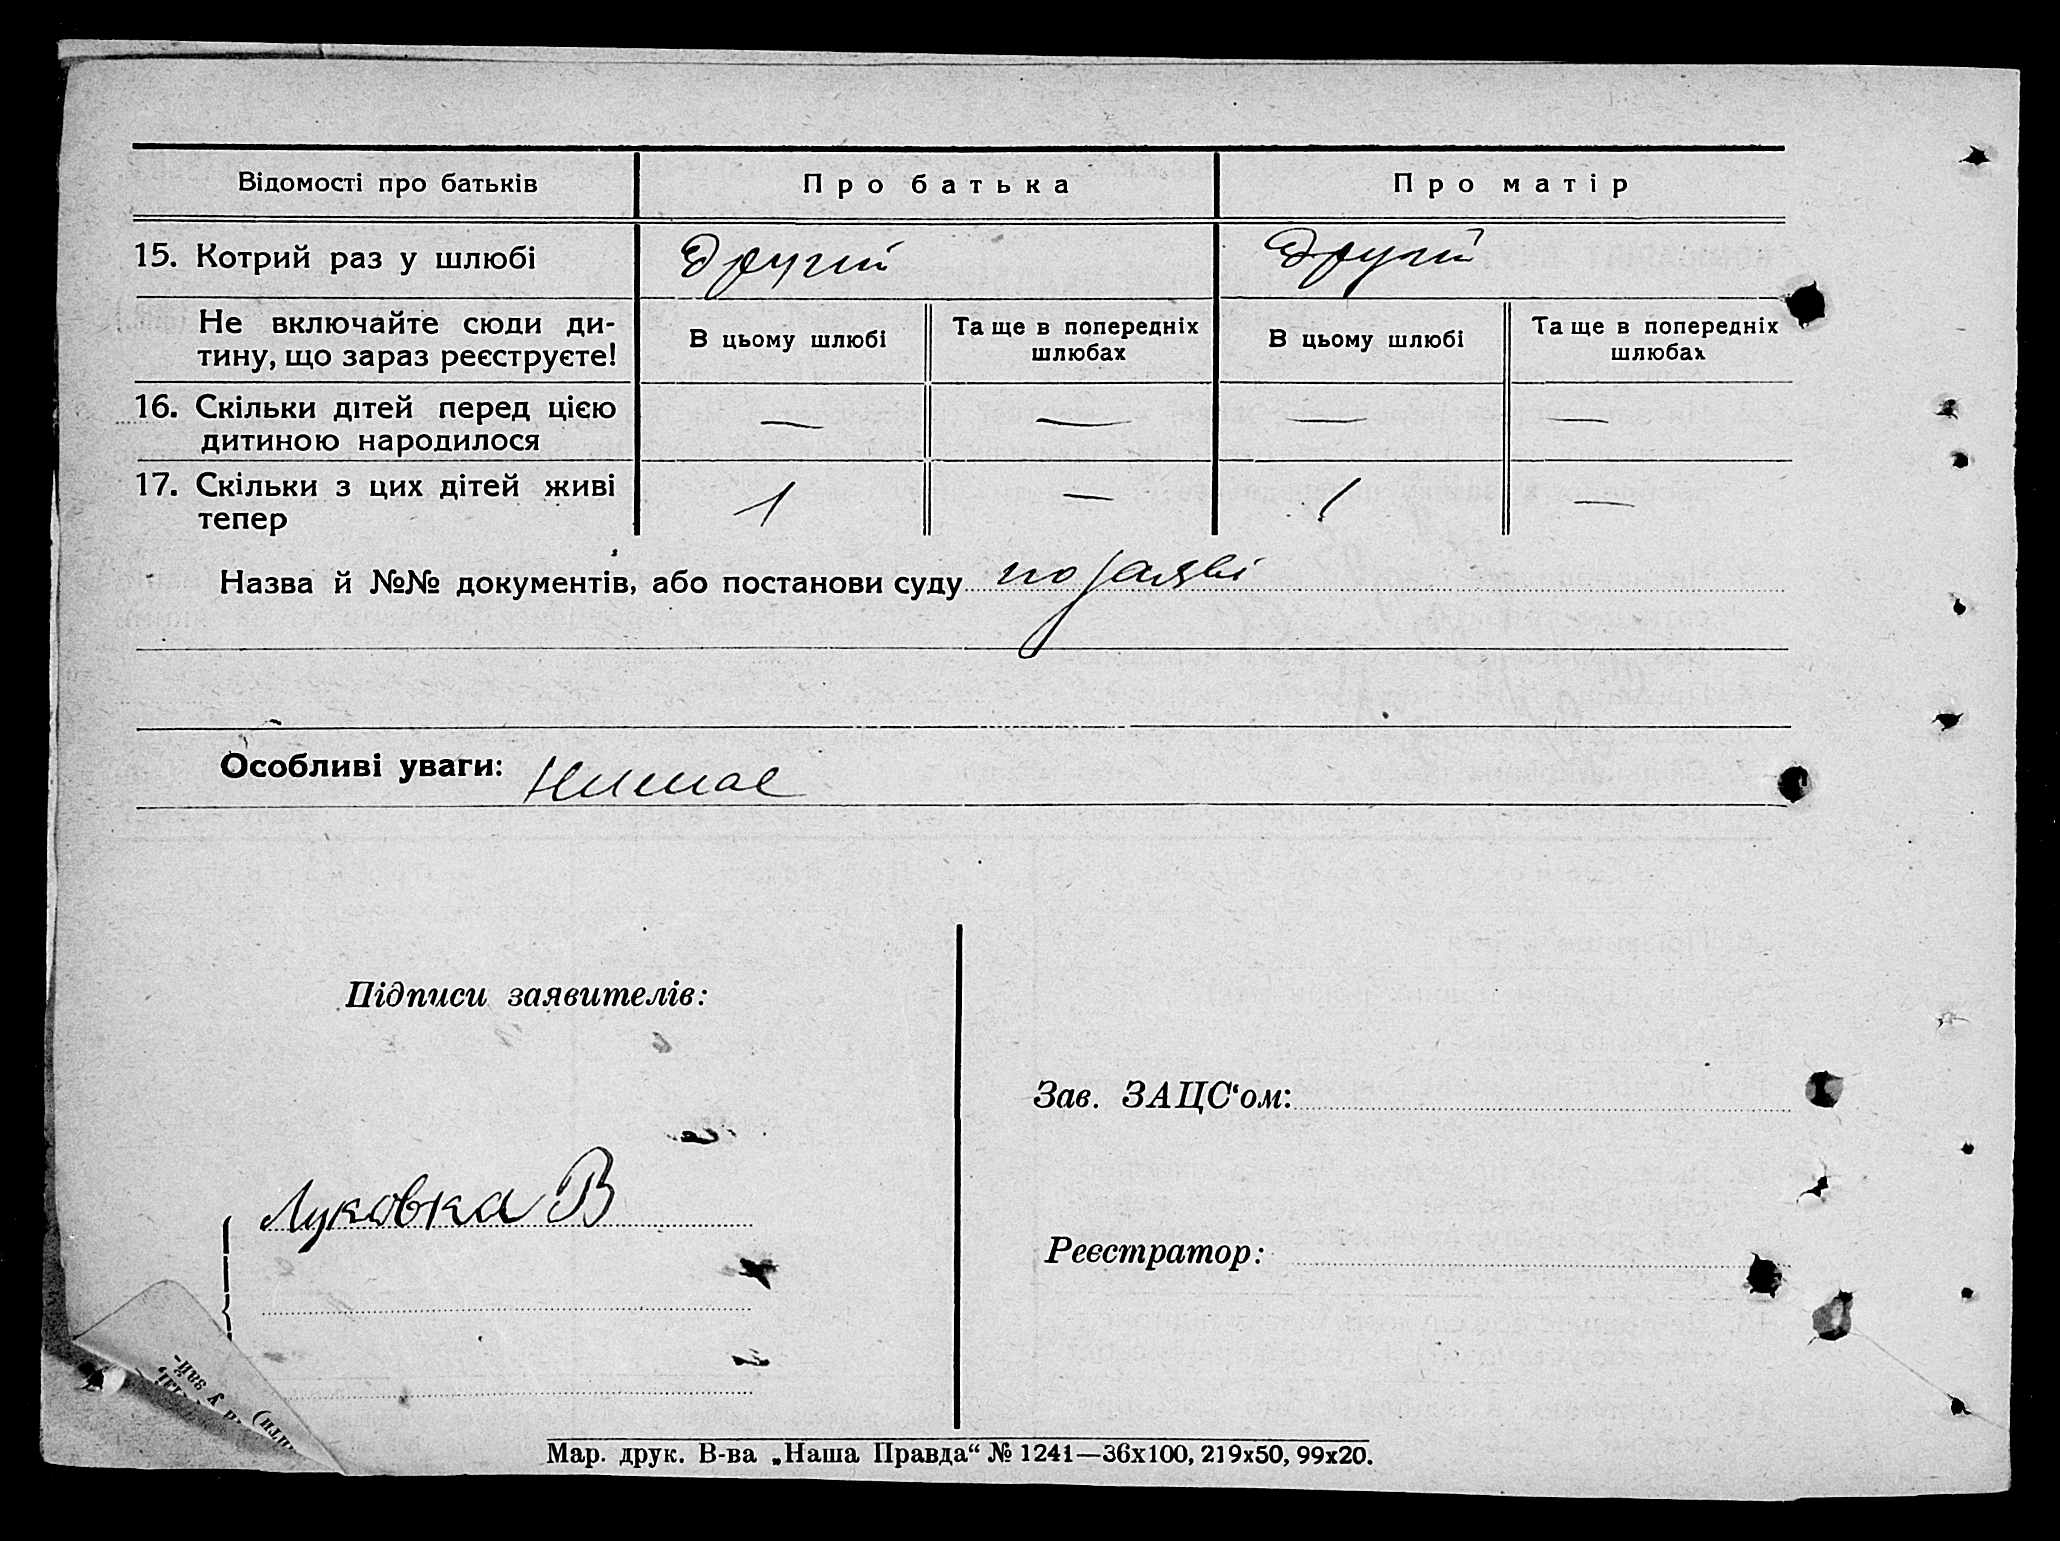 Відомості про батьків Про батька Про матір
15. Котрий раз у шлюбі другий другий
Не включайте сюди ди-
тину, що зараз реєструєте!
В цьому шлюбі
Та ще в попередніх
шлюбах
В цьому шлюбі
Та ще в попередніх
шлюбах
16. Скільки дітей перед цією
дитиною народилося
— — — —
17. Скільки з цих дітей живі
тепер
1 — 1 —
Назва й №№ документів, або постанови суду по заяві
Особливі уваги: Нимае
Підписи заявителів:
Зав. ЗАЦС‘ом:
Луковка В
Реєстратор:
у зай-
Мар. друк. В-ва „Наша Правда“ № 1241—36х100, 219х50, 99х20.